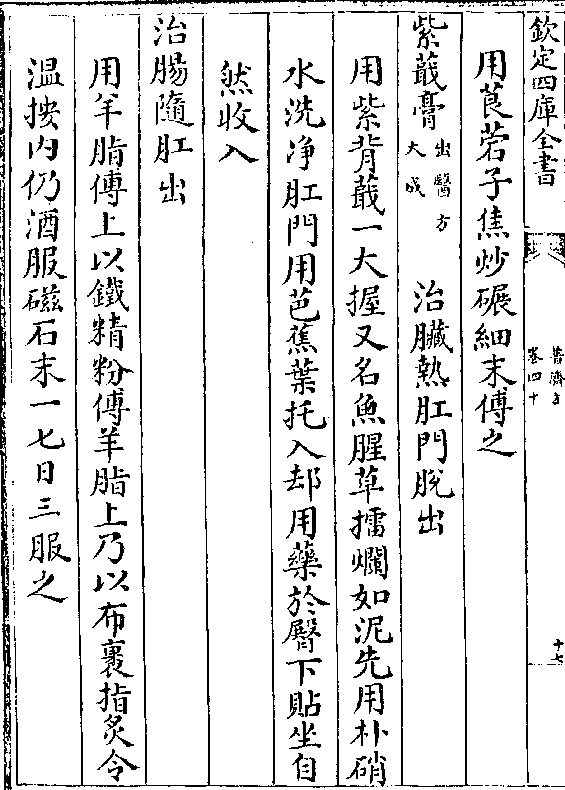 欽定四庫全書
普濟方
卷四十
十七
用莨菪子焦炒碾細末傅之
紫蕺膏出醫方大成 治臟熱肛門脫出
用紫背蕺一大握又名魚腥草擂爛如泥先用朴硝
水洗净肛門用芭蕉葉托入却用藥於臀下貼坐自
然收入
治腸隨肛出
用羊脂傅上以鐵精粉傅羊脂上乃以布裹指炙令
温按内仍酒服磁石末一七日三服之